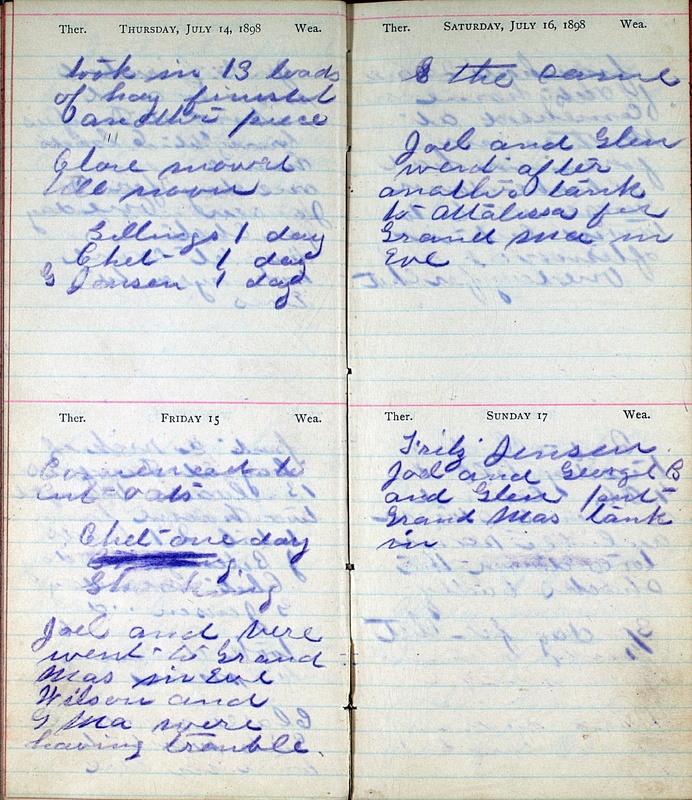 Ther. Thursday, July 14, 1898 Wea.
took in 13 loads
of hay finished
another piece
mowed
till noon
Gillings 1 day
Chet 1 day
G Jensen 1 day
Ther. Friday 15 Wea.
Commenced to
cut oats
Chet one day
Shocking
Joel and Vere
went to Grand
Mas in Eve
Wilson and
G Ma were
having trouble.
Ther. Saturday, July 16, 1898 Wea.
the same
Joel and Glen
went after
another tank
to Attalissa for
Grand Ma in
Eve
Ther. Sunday 17 Wea.
Fritz Jensen.
Joel and George B
and Glen put
Grand Mas tank
in